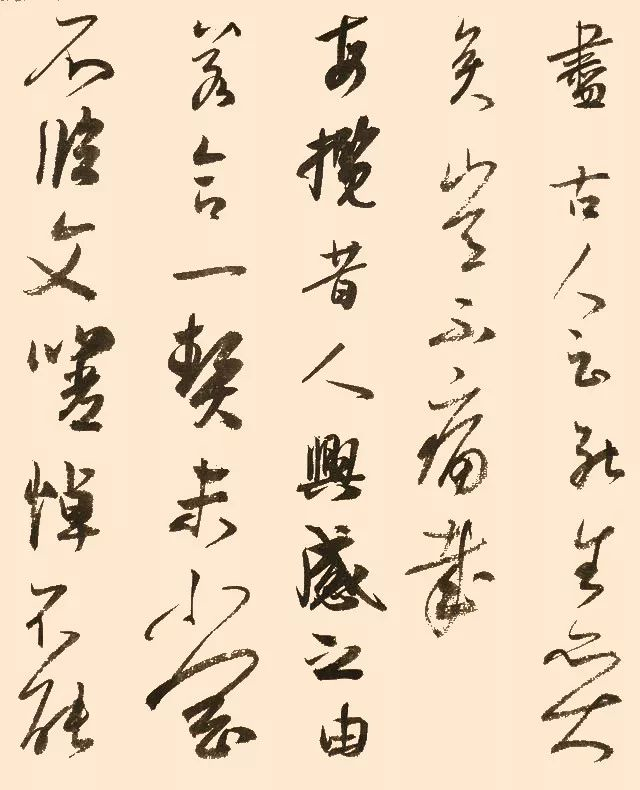 盡古人云死生亦大
矣豈不痛哉
每攬昔人興感之由
若合一契未嘗
不臨文嗟悼不能